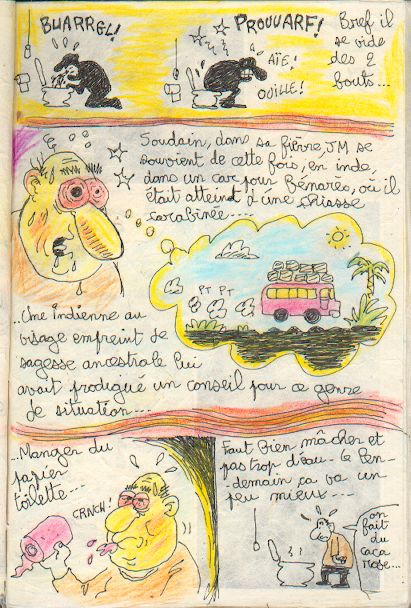 BUARRGL!
PROUUARF!
AÏE!
OUILLE!
Bref il
se vide
des 2
bouts...
Soudain, dans sa fièvre, JM se
souvient de cette fois, en inde,
dans un car pour Bénarès, où il
était atteint d'une chiasse
carabinée....
PT PT
...Une Indienne au
visage empreint de
sagesse ancestrale lui
avait prodigué un conseil pour ce genre
de situation...
...Manger du
papier
toilette...
CRNCH!
Faut bien mâcher et
pas trop d'eau. Le len-
demain ça va un
peu mieux...
on
fait
du
caca
rose...